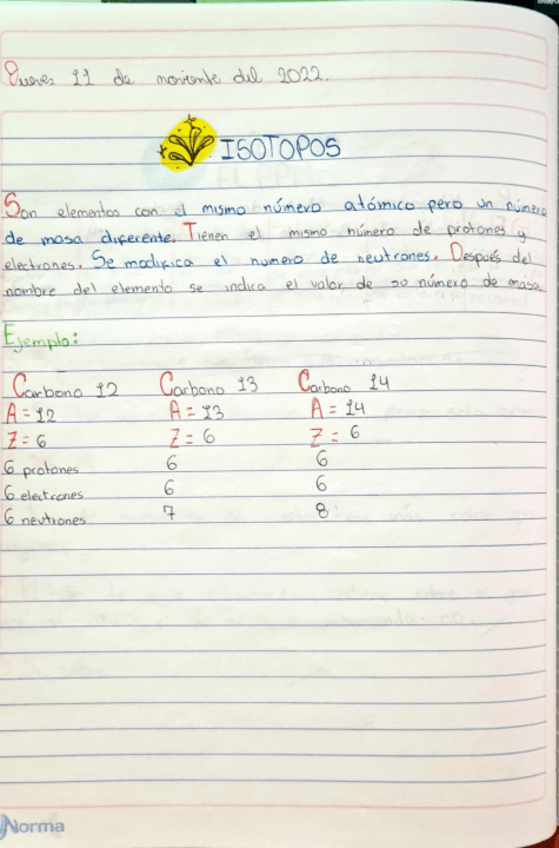 Jueves 11 de noviembre del 2022.
ISOTOPOS
Son elementos con el mismo número atómico pero un número
de masa diferente. Tienen el mismo número de protones y
electrones. Se modifica el numero de neutrones. Después del
nombre del elemento se indica el valor de su número de masa.
Ejemplo:
Carbono 12 Carbono 13 Carbono 14
A = 12 A = 13 A = 14
Z = 6 Z = 6 Z = 6
6 protones 6 6
6 electrones 6 6
6 neutrones 7 8
Norma